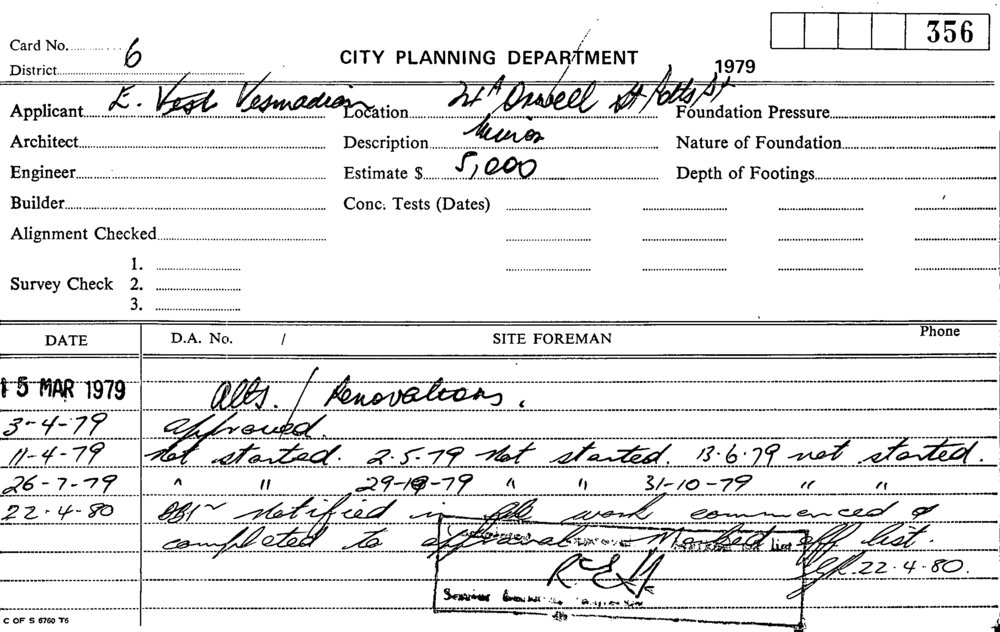 356
Card No. 6
CITY PLANNING DEPARTMENT
District
1979
Applicant E. Location 24A Orwell St Potts Pt Foundation Pressure
Architect Description Minor Nature of Foundation
Engineer Estimate $ 5,000 Depth of Footings
Builder Conc. Tests (Dates)
Alignment Checked
1.
Survey Check 2.
3.
DATE D.A. No. / SITE FOREMAN Phone
15 MAR 1979 Alts. / Renovations.
3-4-79 approved.
11-4-79 Not started. 2.5.79 Not started. 13.6.79 not started.
26-7-79 " " 29-10-79 " " 31-10-79 " "
22.4-80 notified in work commenced &
completed to approval Marked off list.
List
22.4.80.
C OF S 6760 T6